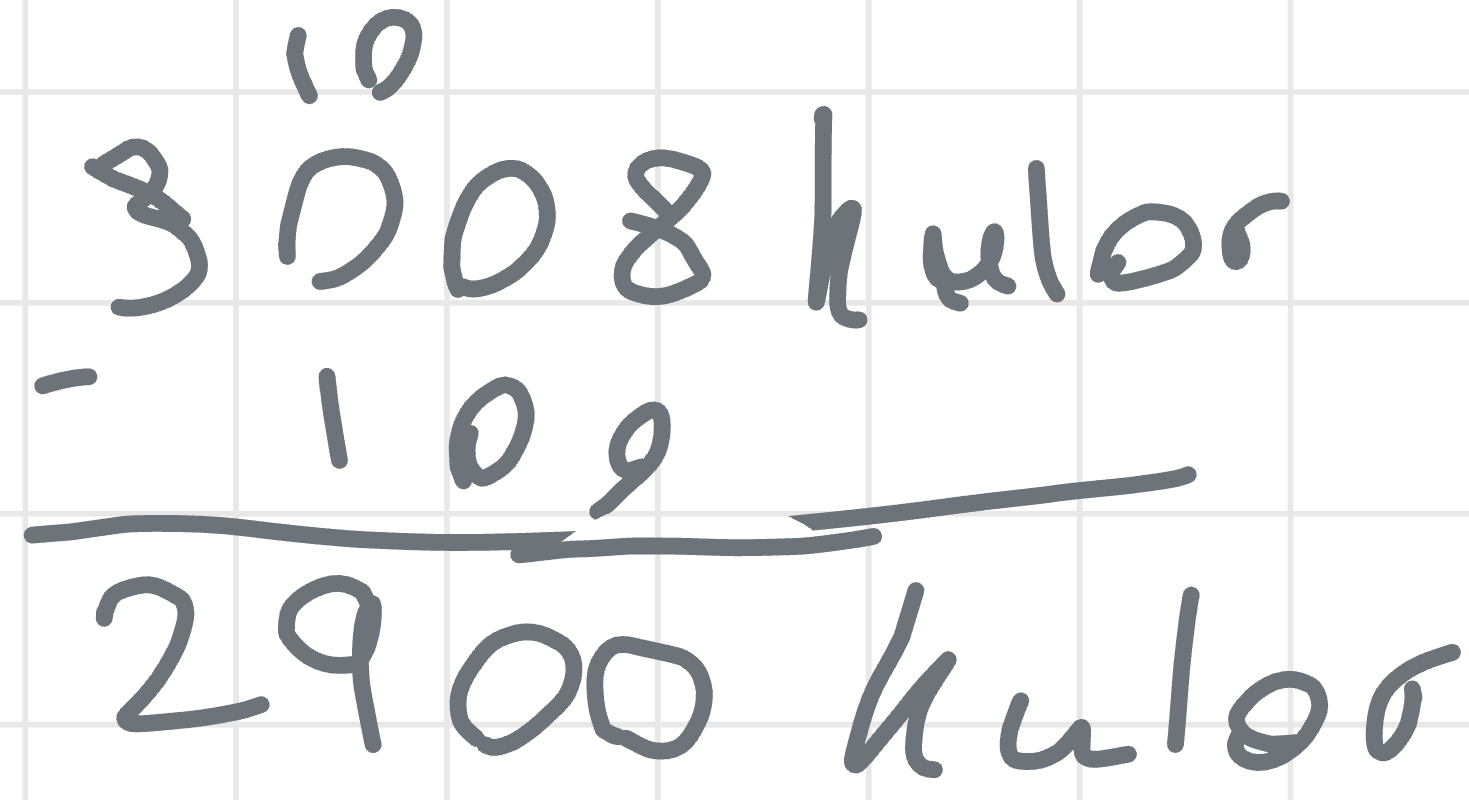 10
3008 kulor
- 100
2900 kulor